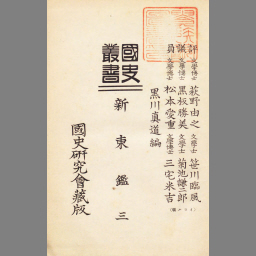 評議員
文學博士 萩野由之 文學士 笹川臨風
文學博士 黒板勝美 文學士 菊池謙二郎
文學士 松本愛重 文學博士 三宅米吉
黒川真道編
國史叢書
新東鑑 三
國史研究會藏版